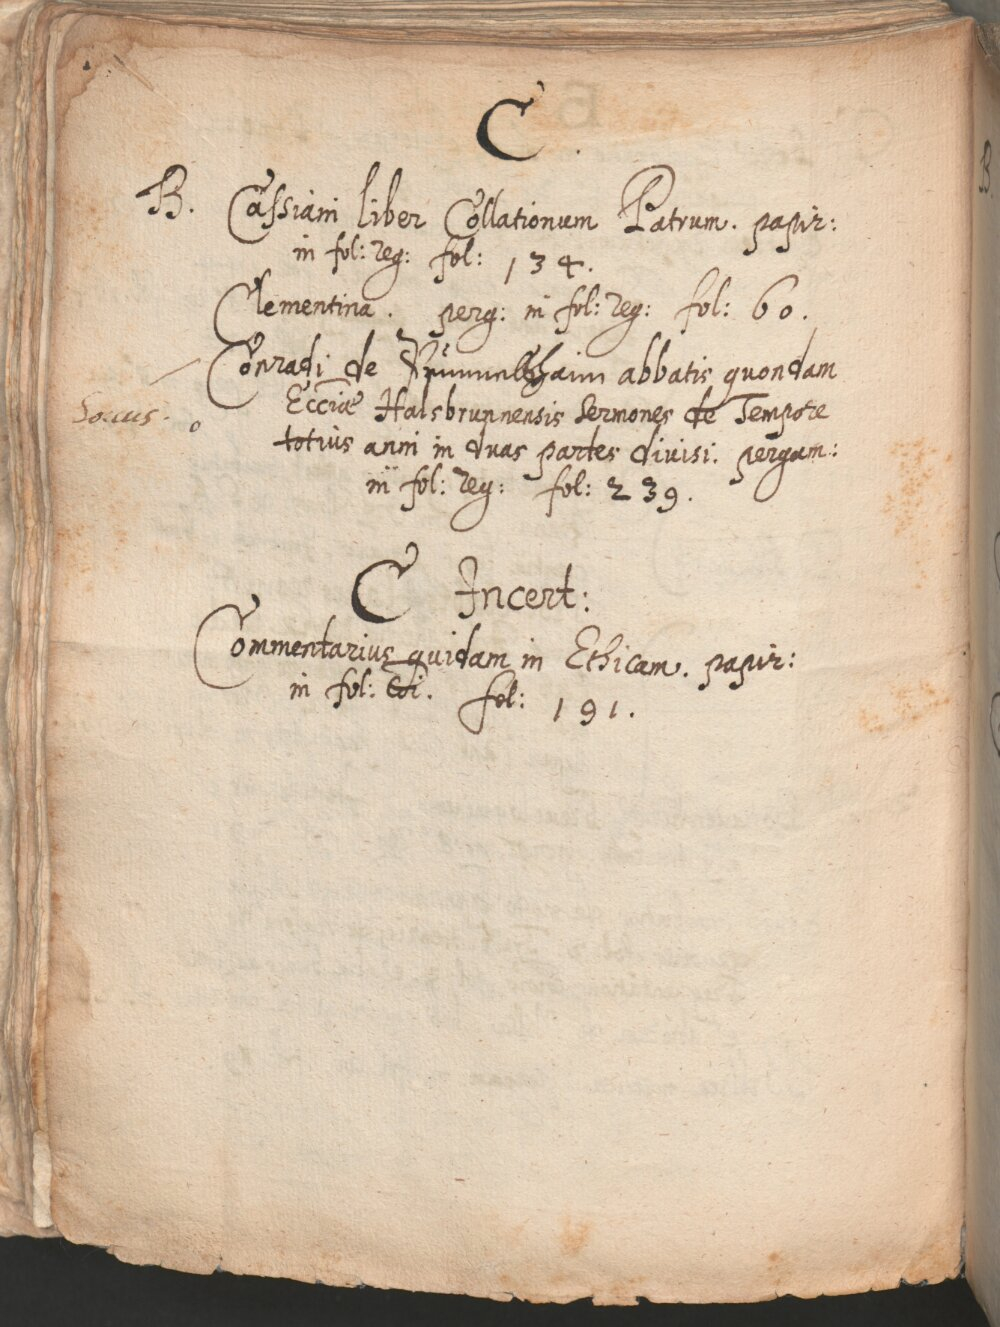 C.
B. Cassiani liber Collationum Patrum. papir:
in fol: reg: fol: 134.
Clementina. perg: in fol: reg: fol: 60.
Conradi de abbatis quondam
Soccus.
Ecciæ Halsbrunnensis Sermones de Tempore
totius anni in duas partes divisi. pergam:
in fol: reg: fol: 239.
C Incert:
Commentarius quidam in Ethicam. papir:
in fol: fol: 191.